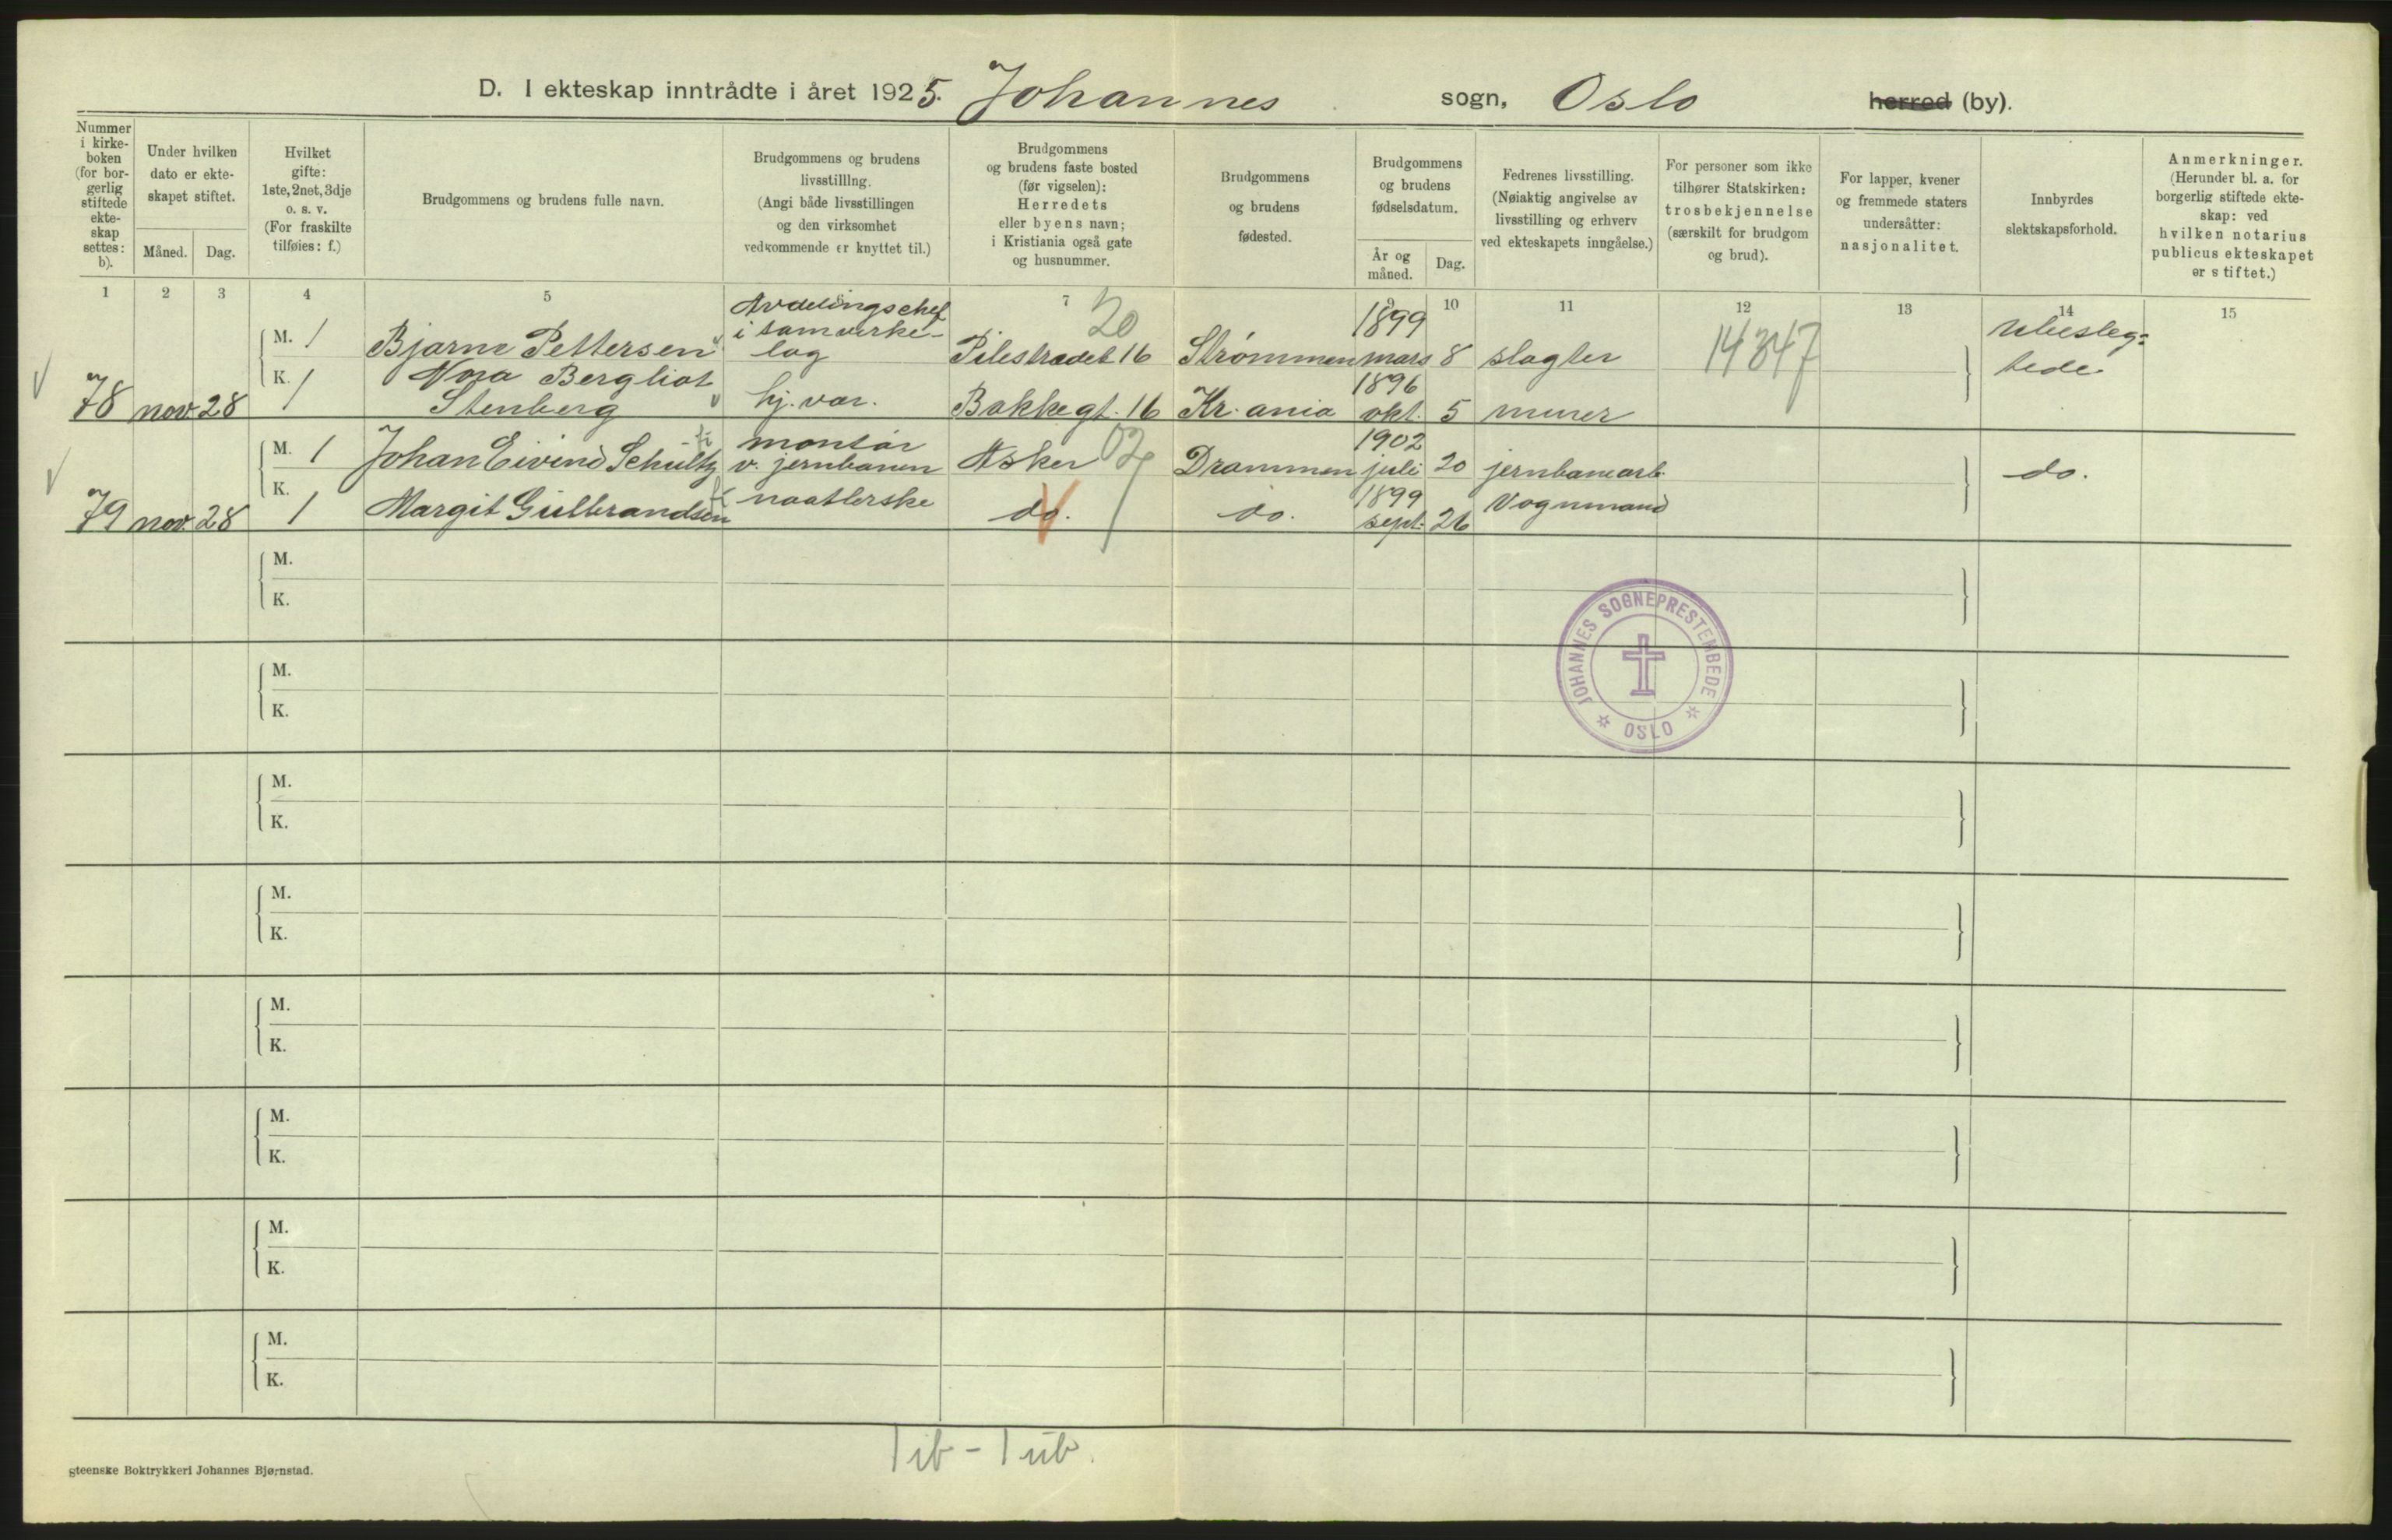 D. I ekteskap inntrådte i året 1925. Johannes sogn, Oslo herred (by).
Nummer i kirkeboken (for borgerlig stiftede ekteskap settes: b).
Under hvilken dato er ekteskapet stiftet.
Måned. Dag.
Hvilket gifte: 1ste, 2net, 3dje o. s. v. (For fraskilte tilføies: f.)
Brudgommens og brudens fulle navn.
Brudgommens og brudens livsstilllng. (Angi både livsstillingen og den virksomhet vedkommende er knyttet til.)
Brudgommens og brudens faste bosted (før vigselen): Herredets eller byens navn; i Kristiania også gate og husnummer.
Brudgommens og brudens fødested.
Brudgommens og brudens fødselsdatum.
År og måned. Dag.
Fedrenes livsstilling. (Nøiaktig angivelse av livsstilling og erhverv ved ekteskapets inngåelse.)
For personer som ikke tilhører Statskirken: trosbekjennelse (særskilt for brudgom og brud).
For lapper, kvener og fremmede staters undersåtter: nasjonalitet.
Innbyrdes slektskapsforhold.
Anmerkninger. (Herunder bl. a. for borgerlig stiftede ekteskap: ved hvilken notarius publicus ekteskapet er stiftet.)
1 2 3 4 5 7 9 10 11 12 13 14 15
20
M. 1 Bjarne Pettersen Avdelingschef i samvirkelag Pilestrædet 16 Strømmen 1899 mars 8 slagter 14347 Ubeslegtede
78 nov. 28 K. 1 Nora Bergliot Stenberg hj. vær. Bakkegt. 16 Kr.ania 1896 okt. 5 murer
M. 1 Johan Eivind Schultz montør v. jernbanen Asker 02 Drammen 1902 juli 20 jernbanearb. do.
79 nov. 28 K. 1 Margit Gulbrandsen naatlerske do. do. 1899 sept. 26 Vognmand
M.
K.
M.
K.
M.
K.
M.
K.
M.
K.
M.
K.
M.
K.
M.
K.
JOHANNES SOGNEPRESTEMBEDE
OSLO
steenske Boktrykkeri Johannes Bjørnstad.